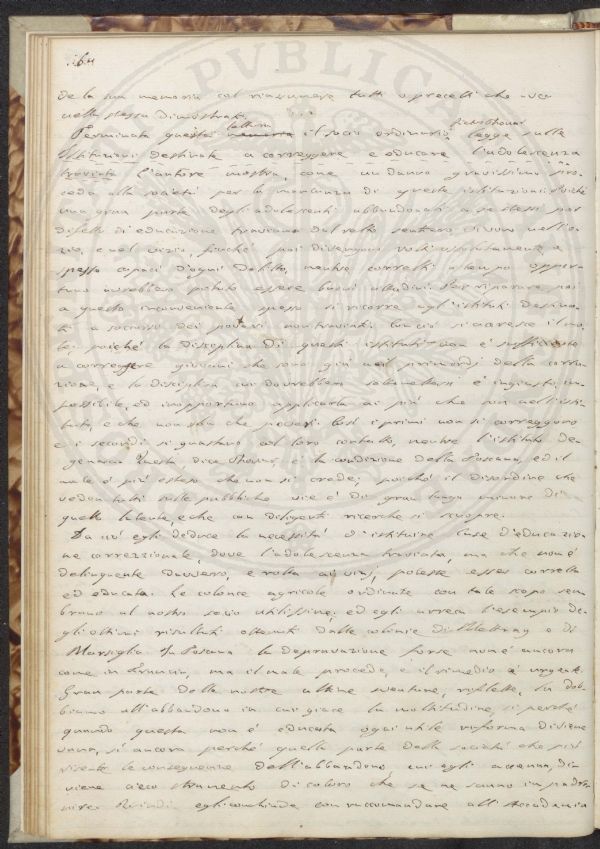 PVBLICA
de la sua memoria col riassumere tutti i precetti che avea
nella stessa dimostrati.
Terminata questa lettura memoria il socio ordinario Pietro Thouar legge sulle
Istituzioni destinate a correggere e educare l'adolescenza
traviata. L'autore mostra, come un danno gravissimo pro=
ceda alla società per la mancanza di queste istituzioni. Poiché
una gran parte degli adolescenti abbandonati a se stessi per
difetto di educazione traviano dal retto sentiero, vivono nell'o=
zio, e nel vizio, finché poi divengono volti apertamente e
spesso capaci d'ogni delitto, mentre corretti a tempo oppor=
tuno avrebbero potuto essere buoni cittadini. Per riparare poi
a questo inconveniente spesso si ricorre agl'istituti destina=
ti a soccorso dei poveri non traviati. Con ciò si accresce il ma=
le; poiché la disciplina di questi istituti non è sufficiente
a correggere giovani che sono già nei primordi della corru=
zione, e la disciplina cui dovrebbero sottomettersi è ingiusto, im=
possibile, ed inopportuno applicarla ai più che son nell'isti=
tuto, e che non son che poveri. Così i primi non si correggono
e i secondi si guastano col loro contatto, mentre l'istituto de=
genera. Questa, dice Thouar, è la condizione della Toscana, ed il
male è più esteso che non si crede; poiché il disordine che
vedon tutti sulle pubbliche vie è di gran lunga minore di
quello latente, e che con diligenti ricerche si scuopre.
Da ciò egli deduce la necessità d'istituire Case d'educazio=
ne correzionale, dove l'adolescenza traviata, ma che non è
delinquente davvero, e rotta ai vizi, potesse esser corretta
ed educata. Le colonie agricole ordinate con tale scopo sem
brano al nostro socio utilissime; ed egli arreca l'esempio de=
gli ottimi risultati ottenuti dalle colonie di Mettray e di
Marsiglia. In Toscana la depravazione forse non è ancora
come in Francia, ma il male procede, e il rimedio è urgente.
Gran parte delle nostre ultime sventure, riflette, la dob=
biamo all'abbandono in cui giace la moltitudine, sì perché
quando questa non è educata ogni utile riforma diviene
vana, sì ancora perché quella parte della società che più
risente le conseguenze dell'abbandono cui egli accenna, di=
viene cieco strumento di coloro che se ne sanno impadro=
nire. Quindi egli conchiude con raccomandare all'Accademia